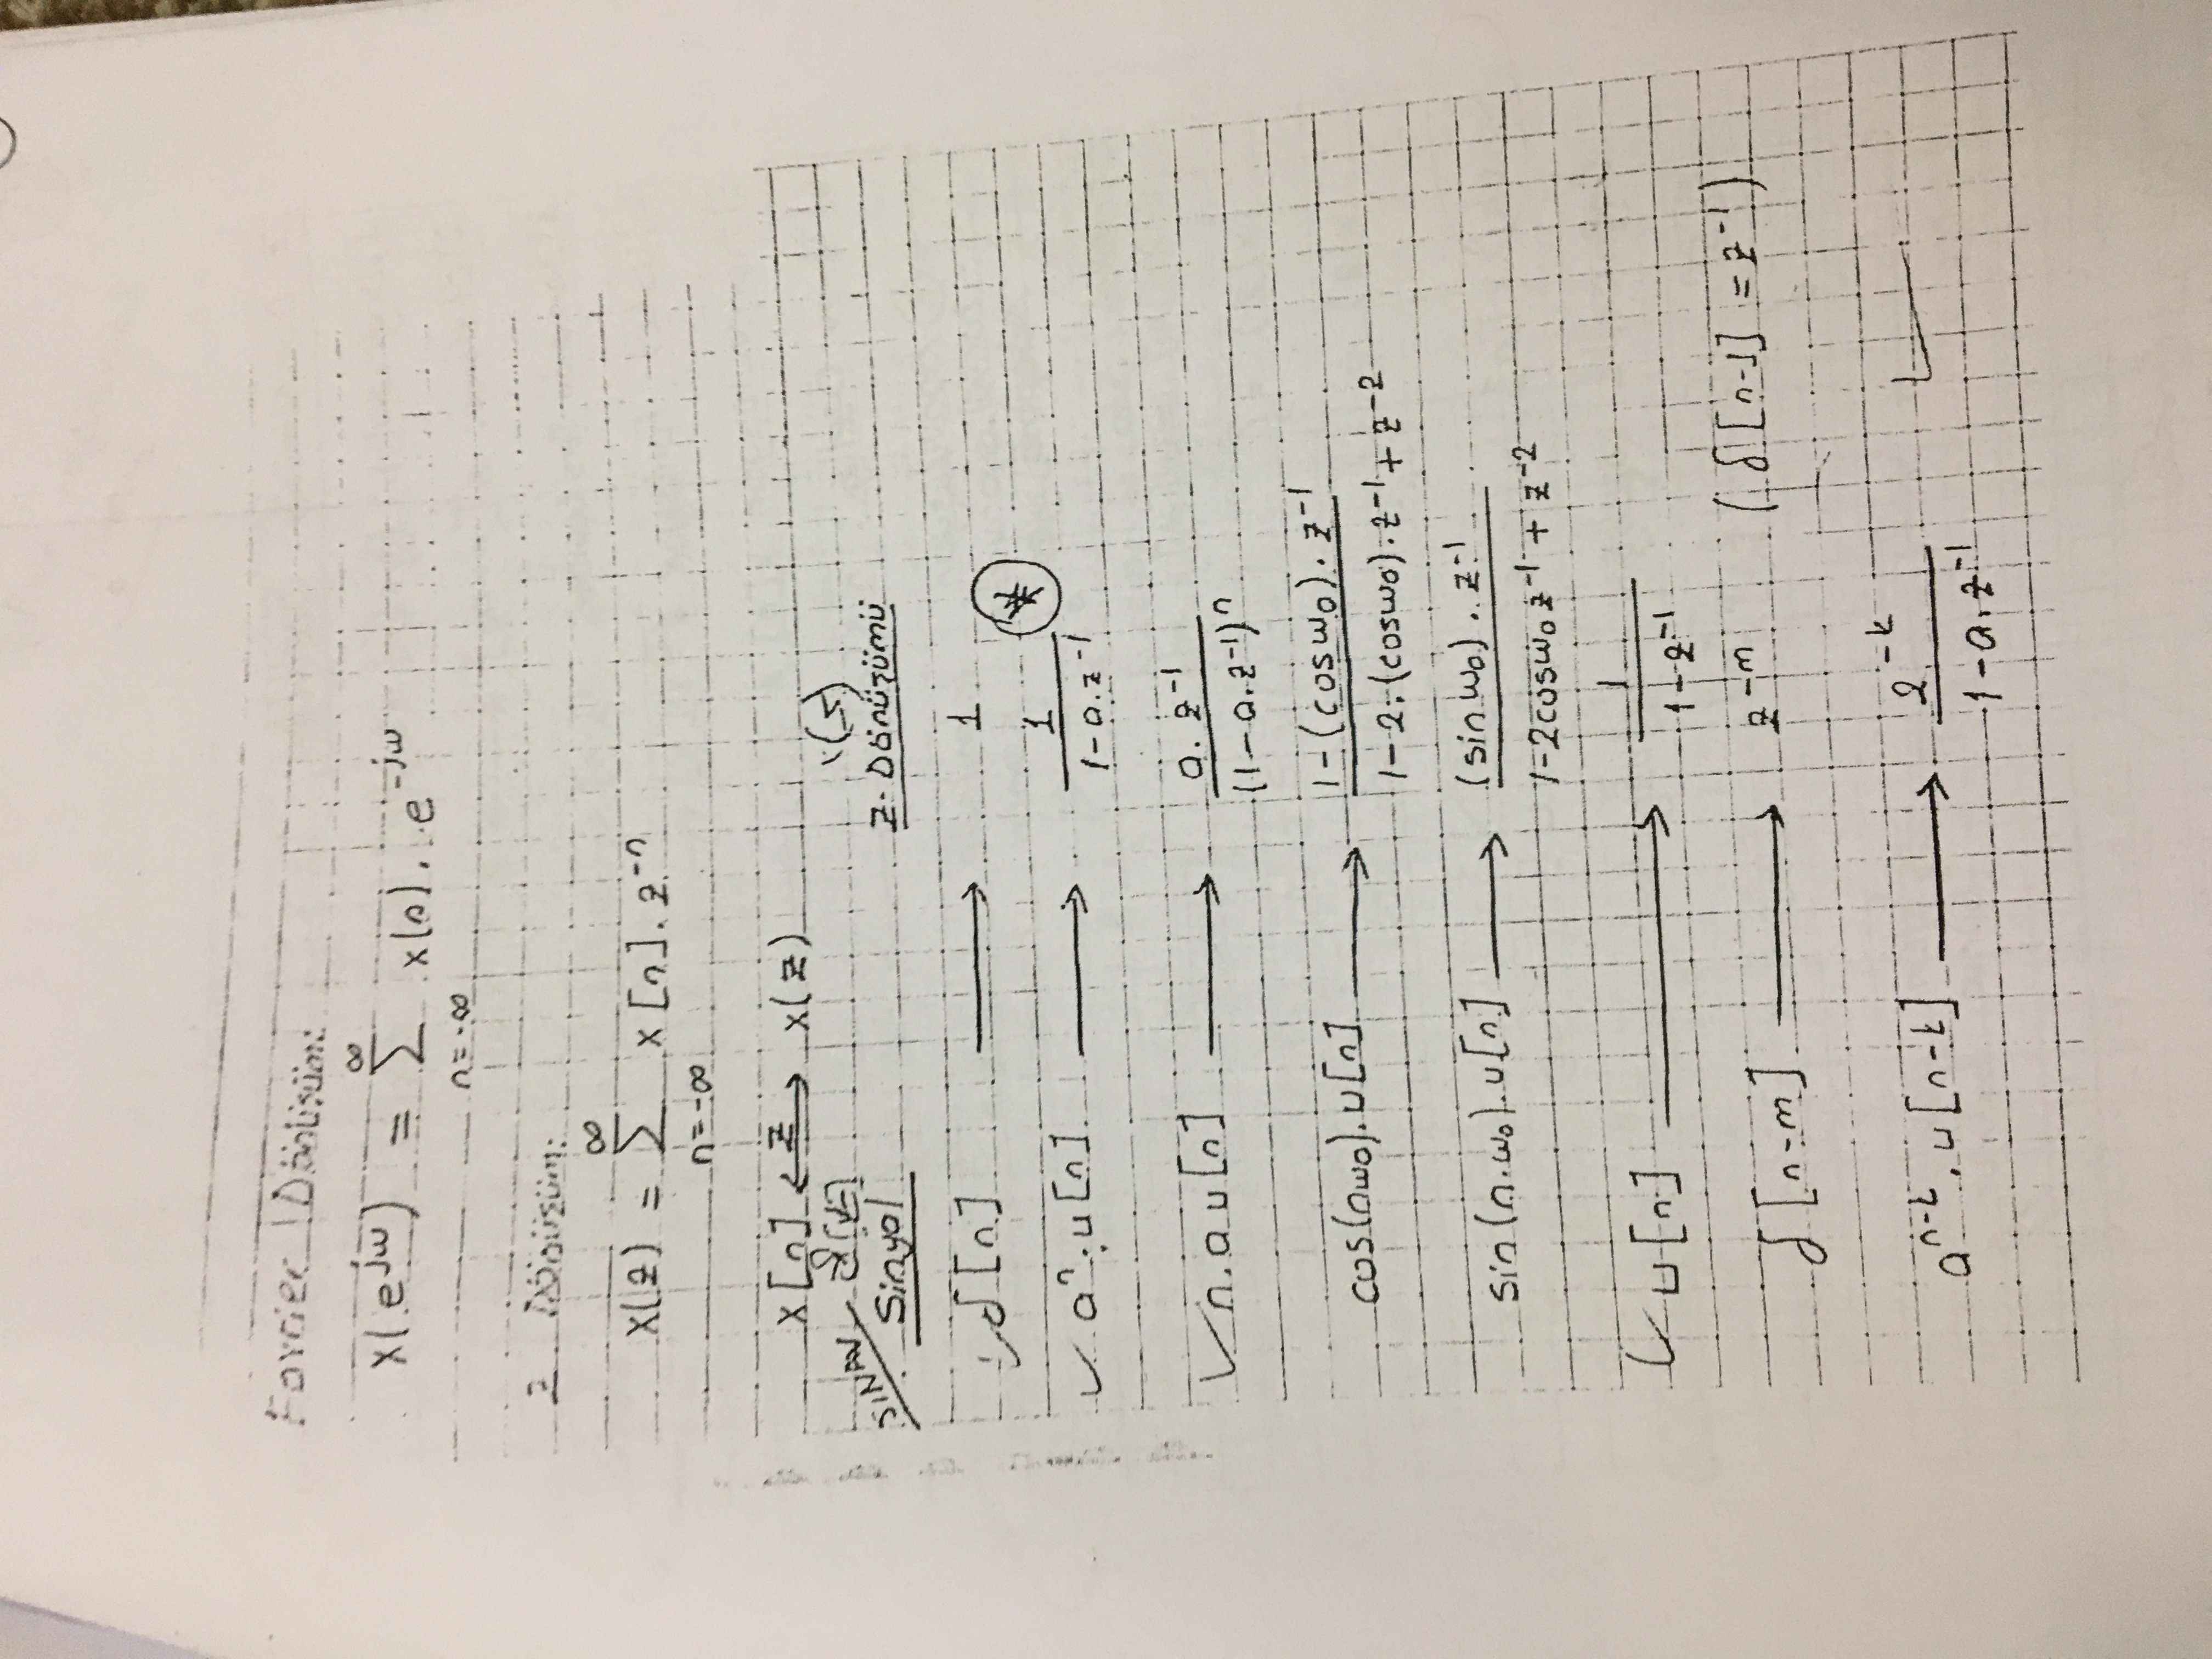 Fourier Dönüşüm:
x(e^jω) = ∑ x(n) . e^-jω
∞
n=-∞
Z Dönüşüm:
x(z) = ∑ x[n] . z^-n
∞
n=-∞
x[n] ⟷ x(z)
z
SINAV
Sinyal Z-Dönüşümü
δ[n] ⟶ 1
✓ a^n . u[n] ⟶ 1 / (1-a.z^-1) *
✓ n.a u[n] ⟶ a.z^-1 / (1-a.z^-1)^n
cos(nω0).u[n] ⟶ 1-(cosω0).z^-1 / 1-2.(cosω0).z^-1+z^-2
sin(n.ω0).u[n] ⟶ (sinω0).z^-1 / 1-2cosω0 z^-1 + z^-2
✓ u[n] ⟶ 1 / 1-z^-1
δ[n-m] ⟶ z^-m (δ[n-1] = z^-1)
a^n-k . u[n-k] ⟶ z^-k / 1-a.z^-1 ✓